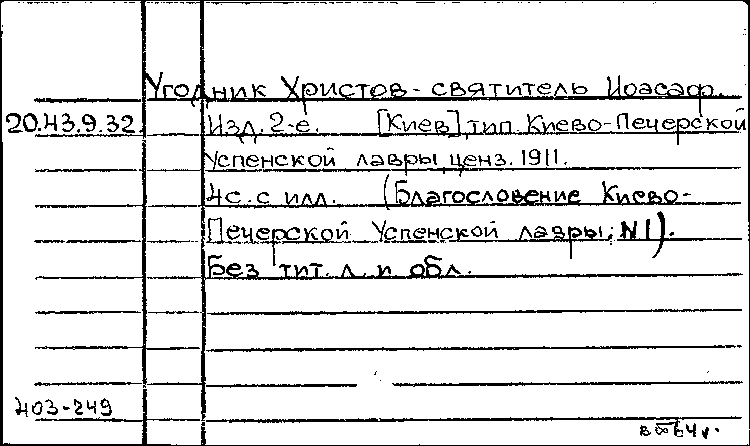 Угодник Христов - святитель Иоасаф.
20.43.9.32 Изд. 2-е. [Киев], тип. Киево-Печерской
Успенской лавры, ценз. 1911.
4 с. с илл. (Благословение Киево-
Печерской Успенской лавры; N1).
Без тит. л. и обл.
403-249